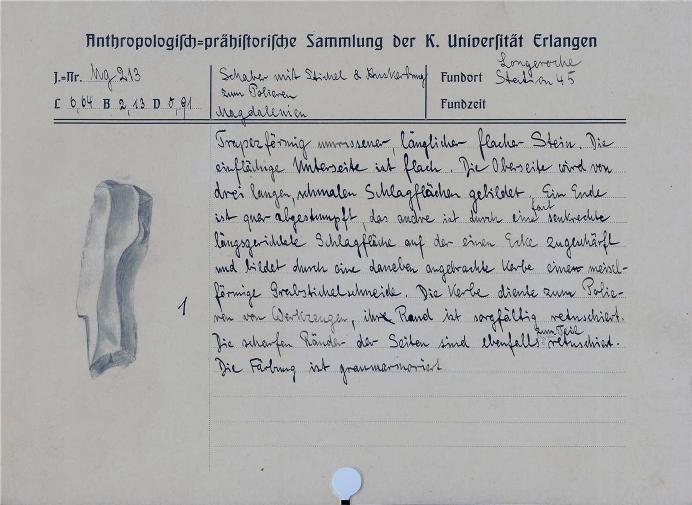 Anthropologisch=prähistorische Sammlung der K. Universität Erlangen
J.=Nr. Mg 213
L 6,64 B 2,13 D 0,91
Schaber mit Stichel & Auskerbung
zum Polieren
Magdalenien
Fundort Longeroche
Station 45
Fundzeit
Trapezförmig umrissener, länglicher flacher Stein. Die
einflächige Unterseite ist flach. Die Oberseite wird von
drei langen, schmalen Schlagflächen gebildet. Ein Ende
ist quer abgestumpft, das andre ist durch eine fast senkrechte
längsgerichtete Schlagfläche auf der einen Ecke zugeschärft
und bildet durch eine daneben angebrachte Kerbe eine meisel-
förmige Grabstichelschneide. Die Kerbe diente zum Polie-
ren von Werkzeugen, ihr Rand ist sorgfältig retuschiert.
Die scharfen Ränder der Seiten sind ebenfalls zum Teil retuschiert.
Die Färbung ist graumarmoriert
1